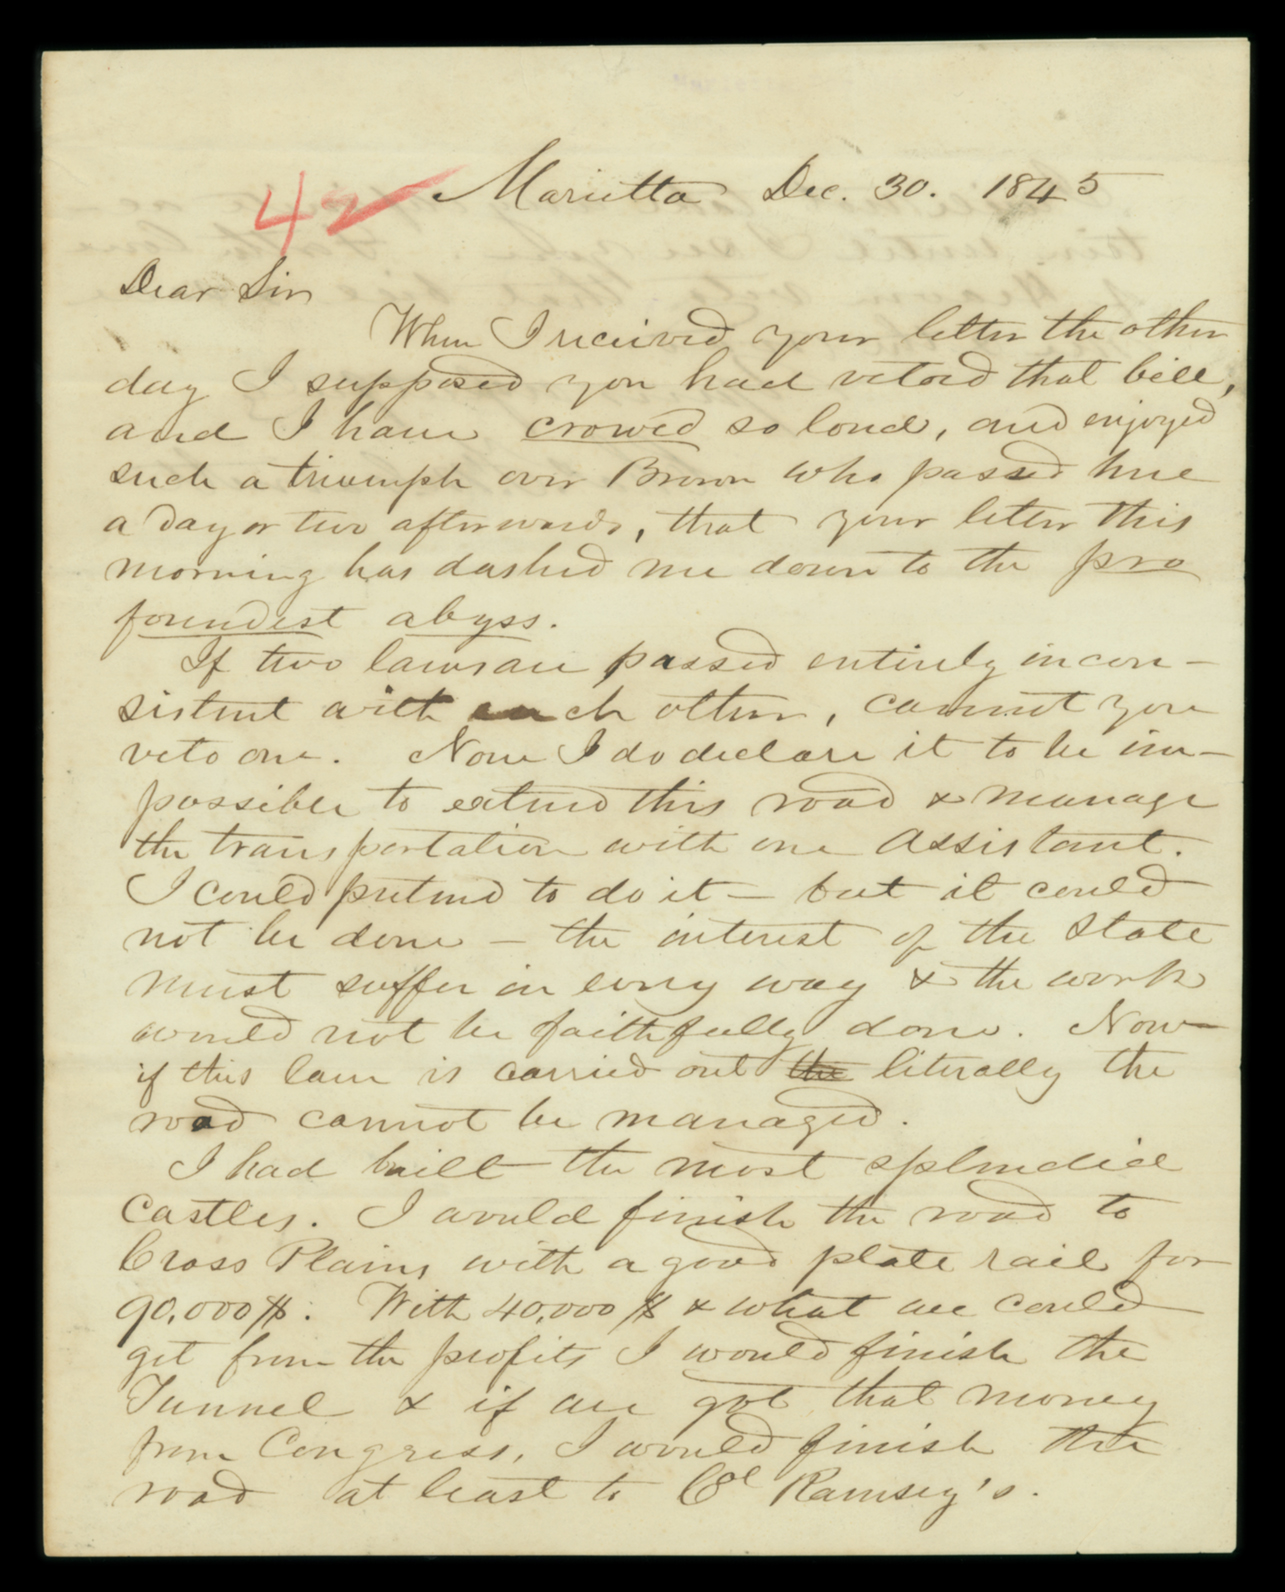 42
Marietta Dec. 30. 1845
Dear Sir
When I received your letter the other
day I supposed you had vetoed that bill,
and I have crowed so loud, and enjoyed
such a triumph over Brown who passed here
a day or two afterwards, that your letter this
morning has dashed me down to the pro
foundest abyss.
If two laws are passed entirely incon-
sistent with each other, cannot you
veto one. Now I do declare it to be im-
possible to extend this road & manage
the transportation with one Assistant.
I could pretend to do it - but it could
not be done - the interest of the State
must suffer in every way & the work
would not be faithfully done. Now
if this law is carried out the literally the
road cannot be managed.
I had built the most splendid
Castles. I would finish the road to
Cross Plains with a good plate rail for
90,000$. With 40,000$ & what we could
get from the profits I would finish the
Tunnel & if we got that money
from Congress, I would finish the
road at least to Col Ramsey's.